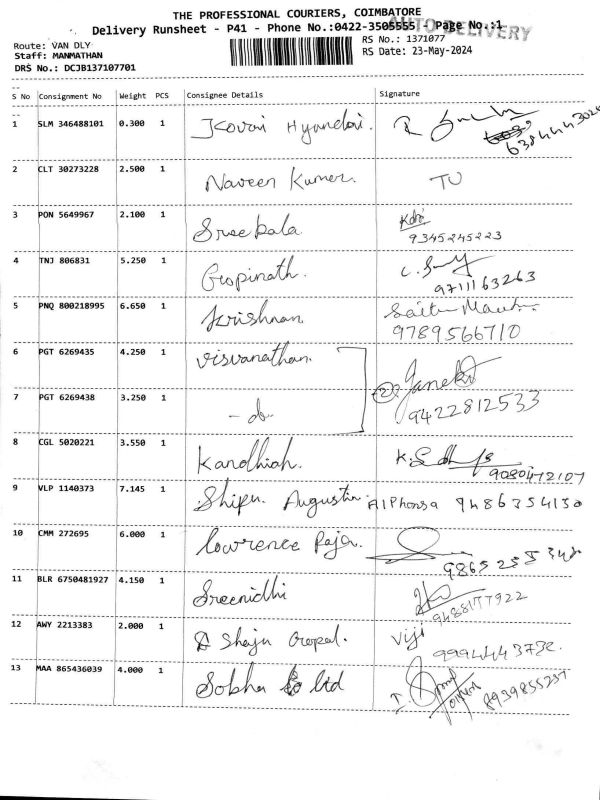 THE PROFESSIONAL COURIERS, COIMBATORE
Delivery Runsheet - P41 - Phone No.:0422-3505555 - Page No.:1
AUTO DELIVERY
Route: VAN DLY
RS No.: 1371077
Staff: MANMATHAN
RS Date: 23-May-2024
DRS No.: DCJB137107701
S No Consignment No Weight PCS Consignee Details Signature
1 SLM 346488101 0.300 1 Kovai Hyundai.
2 CLT 30273228 2.500 1 Naveen Kumar. TU
3 PON 5649967 2.100 1 Sreekala
9345245223
4 TNJ 806831 5.250 1 Gopinath.
9711163263
5 PNQ 800218995 6.650 1 Krishnan
9789566710
6 PGT 6269435 4.250 1 Visvanathan.
7 PGT 6269438 3.250 1 - do -
9422812533
8 CGL 5020221 3.550 1 Kandhiah.
9080472107
9 VLP 1140373 7.145 1 Shipu. Augustin Alphonsa 9486354130
10 CMM 272695 6.000 1 Lowrence Raja.
11 BLR 6750481927 4.150 1 Sreenidhi
9488177922
12 AWY 2213383 2.000 1 Shaju Gopal. Viji
9994443732.
13 MAA 865436039 4.000 1 Sobha Ltd
8939855237